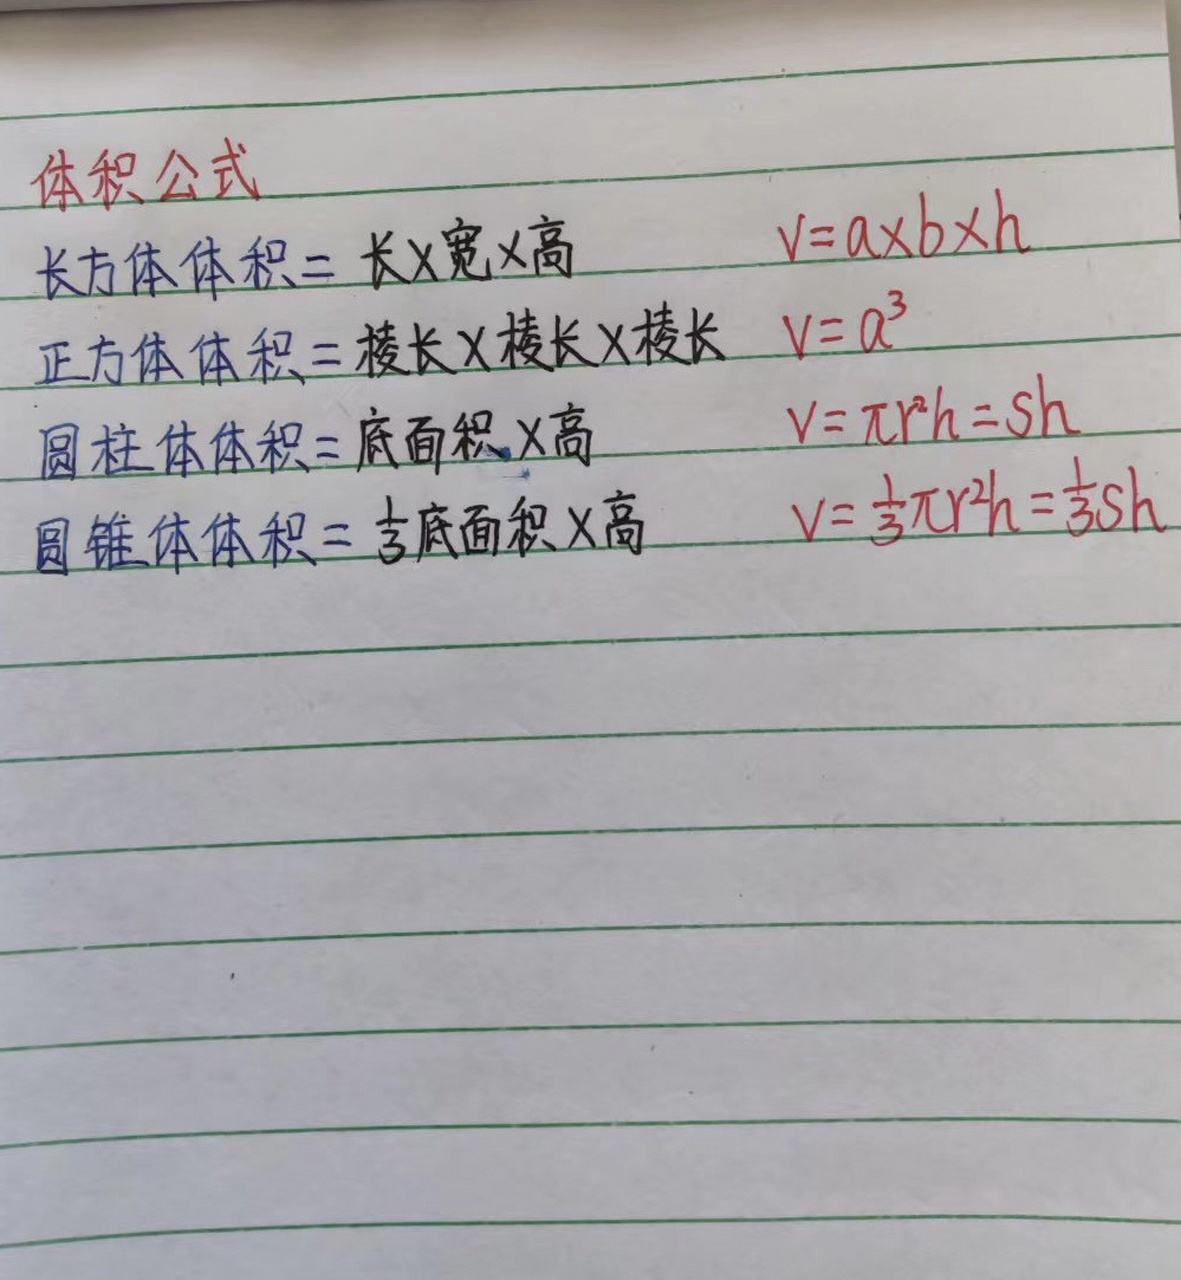 体积公式
长方体体积=长×宽×高 V=a×b×h
正方体体积=棱长×棱长×棱长 V=a³
圆柱体体积=底面积×高 V=πr²h=sh
圆锥体体积=⅓底面积×高 V=⅓πr²h=⅓sh